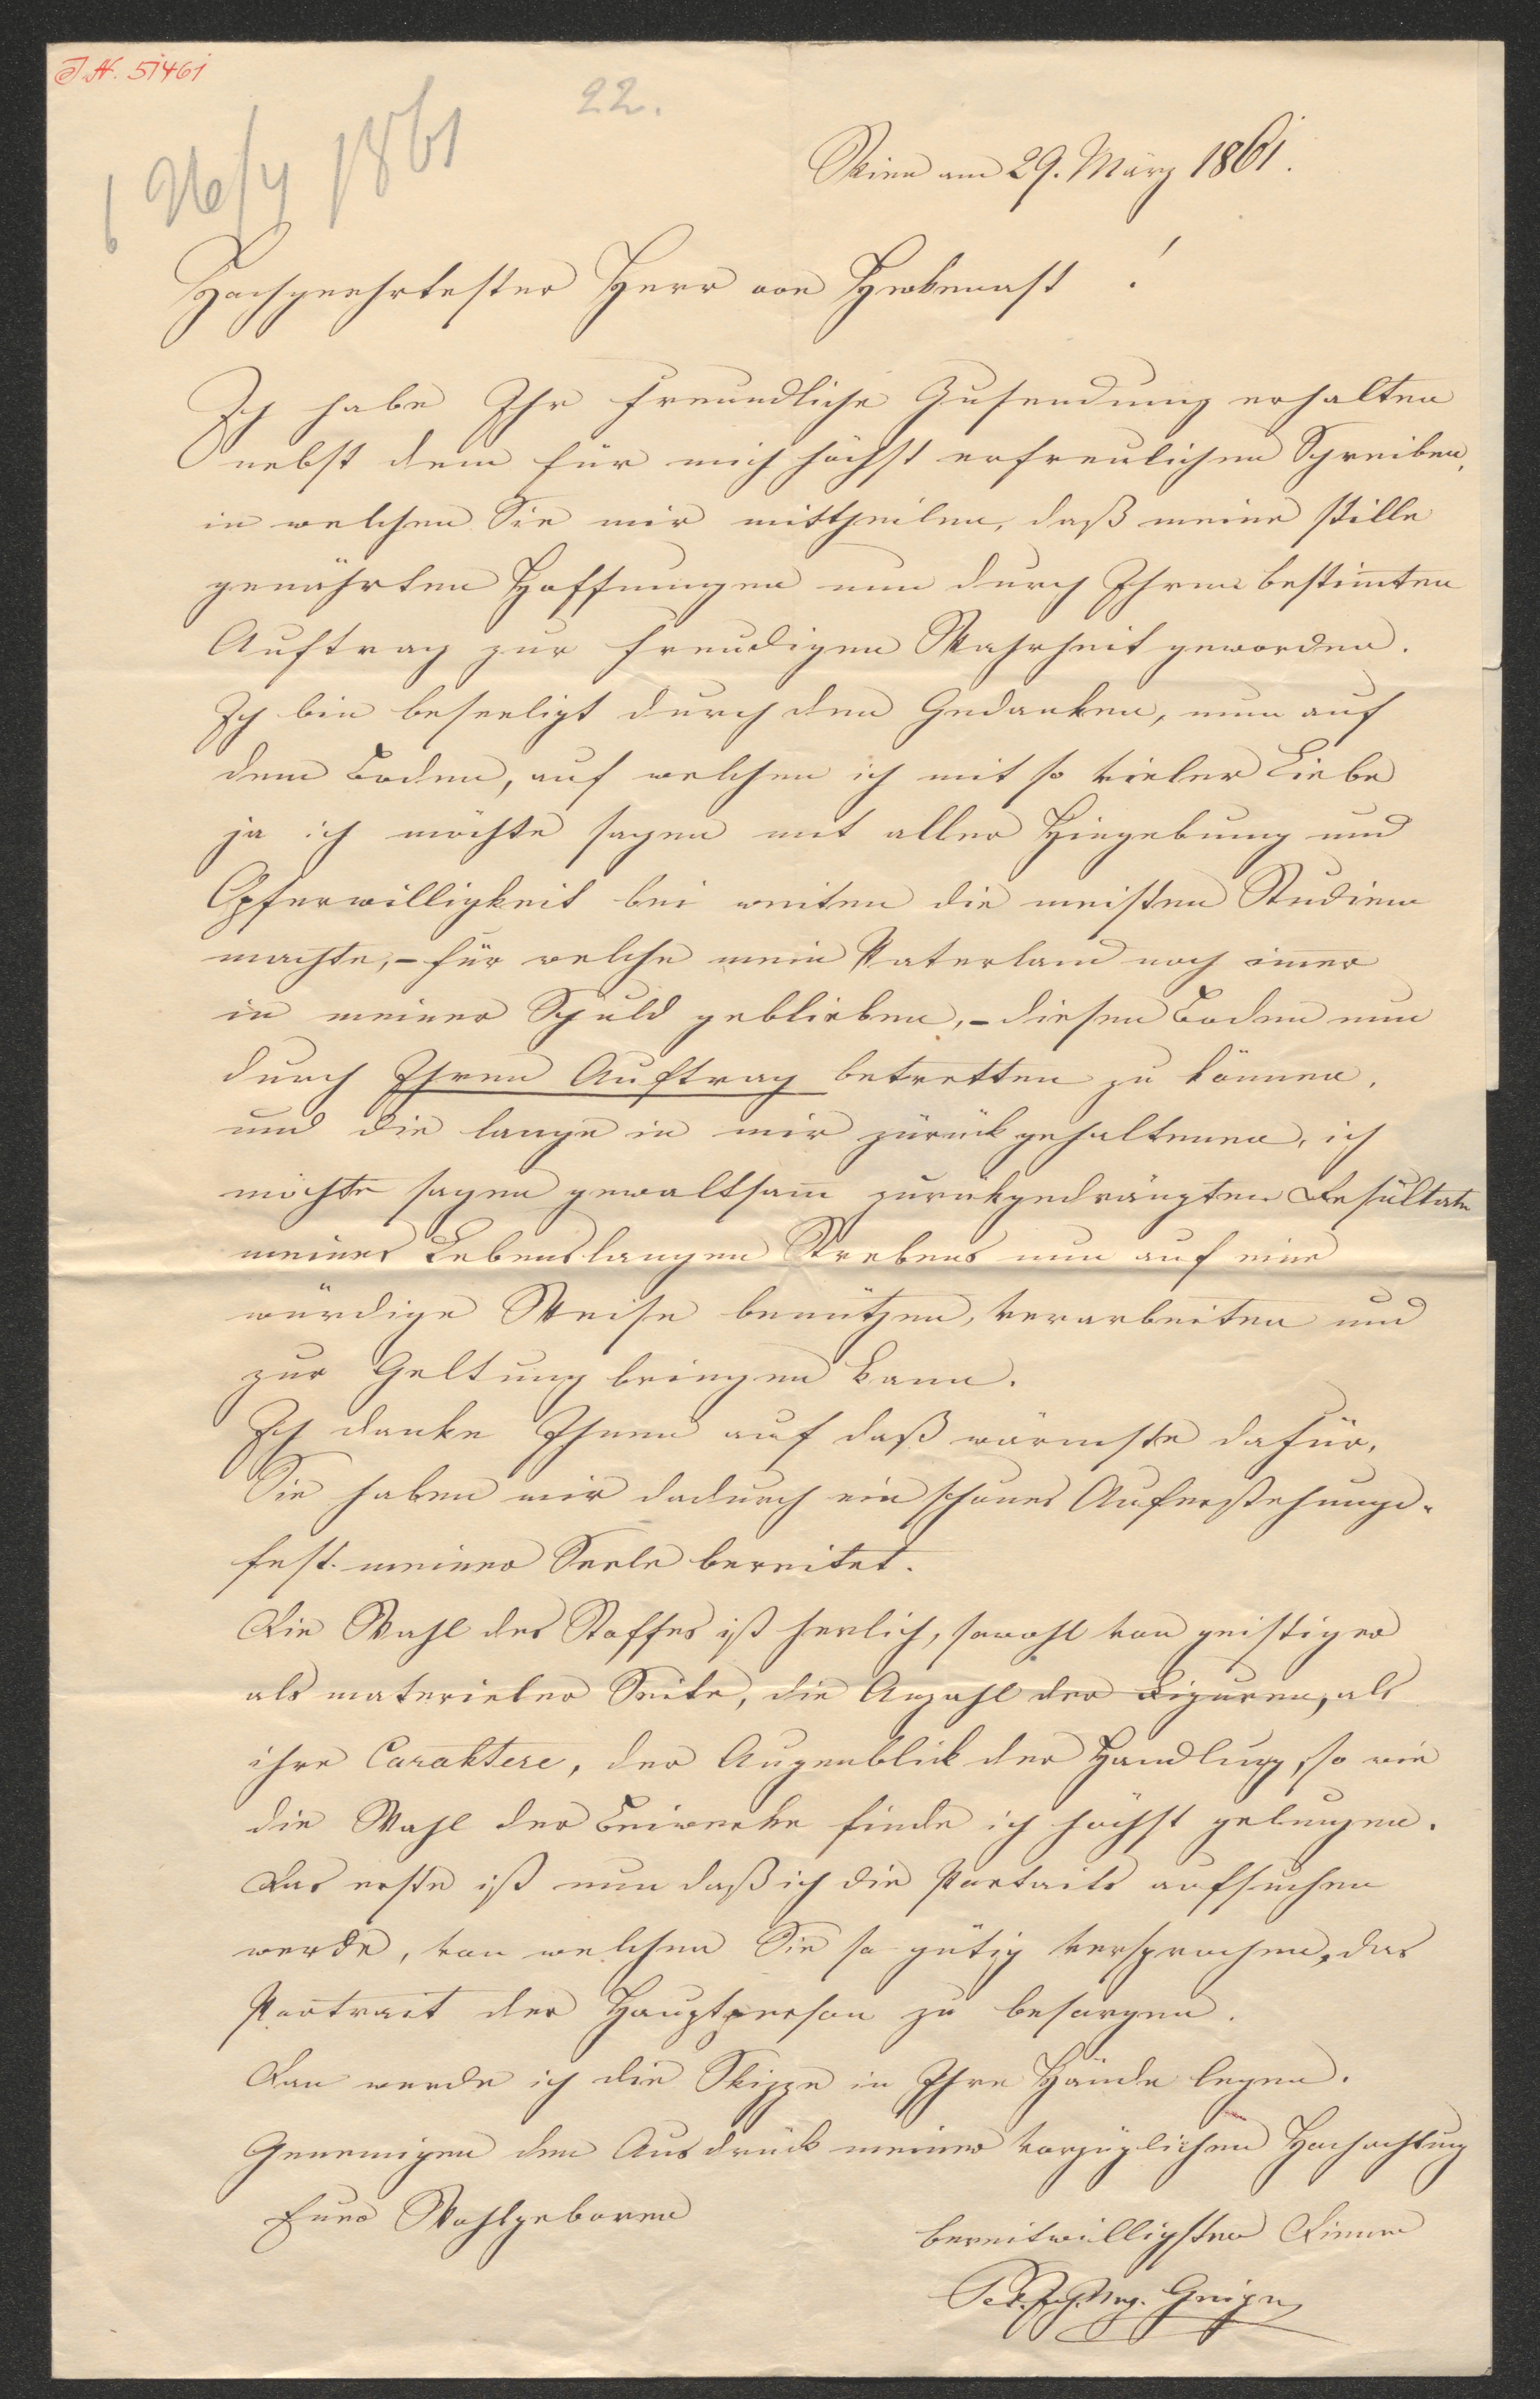 I.N. 51461
22.
26/4 1861
Wien am 29. März 1861.
Hochgeehrtester Herr von Hekenast!
Ich habe Ihr freundliche Zusendung erhalten
nebst dem für mich höchst erfreulichen Schreiben,
in welchen Sie mir mittheilen, daß meine stille
genährten Hoffnungen nun durch Ihren bestim̄ten
Auftrag zur freudigen Wahrheit geworden.
Ich bin beseeligt durch den Gedanken, nun auf
dem Boden, auf welchen ich mit so vieler Liebe
ja ich möchte sagen mit aller Hingebung und
Opferwilligkeit bei weiten die meisten Studien
machte, – für welche mein Vaterland noch im̄er
in meiner Schuld geblieben, – diesen Boden nun
durch Ihren Auftrag betretten zu können,
und die lange in mir zurückgehaltenen, ich
möchte sagen gewaltsam zurükgedrängten Resultate
meines Lebenslangen Strebens nun auf eine
würdige Weise benützen, verarbeiten und
zur Geltung bringen kann.
Ich danke Ihnen auf daß wärmste dafür,
Sie haben mir dadurch ein schönes Auferstehungs-
fest meiner Seele bereitet.
Die Wahl des Stoffes ist herlich, sowohl von geistiger
als materieler Seite, die Anzahl der Figuren, als
ihre Caraktere, der Augenblick der Handlung, so wie
die Wahl der Beiwerke finde ich höchst gelungen.
Das erste ist nun daß ich die Portraits aufsuchen
werde, von welchen Sie so gütig versprochen, das
Portrait der Hauptperson zu besorgen.
Dan werde ich die Skizze in Ihre Hände legen.
Genemigen den Ausdruck meiner vorzüglichen Hochachtung
Euer Wohlgeboren
bereitwilligsten Diener
Pet. Joh. Nep. Geiger